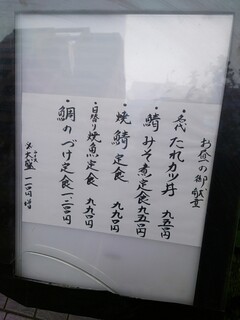 お昼の御献立
・名代 たれカツ丼 九五〇円
・鯖みそ煮定食 九五〇円
・焼鯖定食 九九〇円
・日替り焼魚定食 九九〇円
・鯛のづけ定食 一二〇〇円
大盛 一一〇円増